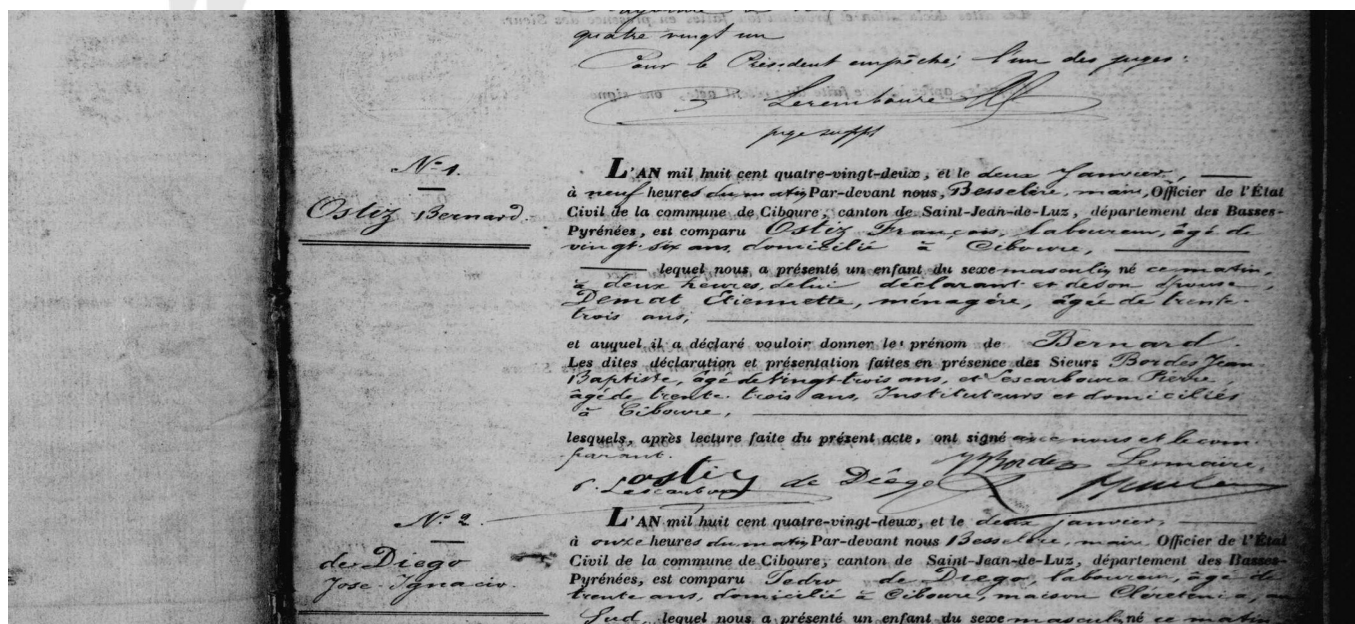 quatre vingt un
Pour le Président empêché, l'un des juges:
Lerembourе
juge suppt
N° 1.
Ostiz Bernard.
L'AN mil huit cent quatre-vingt-deux, et le deux Janvier,
à neuf heures du matin Par-devant nous, Besselère, maire, Officier de l'État
Civil de la commune de Ciboure, canton de Saint-Jean-de-Luz, département des Basses-
Pyrénées, est comparu Ostiz François, laboureur, âgé de
vingt-six ans, domicilié à Ciboure,
lequel nous a présenté un enfant du sexe masculin né ce matin,
à deux heures, de lui déclarant et de son épouse,
Demat Etiennette, ménagère, âgée de trente-
trois ans,
et auquel il a déclaré vouloir donner le prénom de Bernard.
Les dites déclaration et présentation faites en présence des Sieurs Bordes Jean-
Baptiste, âgé de vingt trois ans, et Lescarboura Pierre,
âgé de trente-trois ans, Instituteurs et domiciliés
à Ciboure,
lesquels, après lecture faite du présent acte, ont signé avec nous et le com-
parant.
JBordes Le maire,
ostiz de Diégo
P. Lescarboura
N° 2.
de Diego
Jose-Ignacio.
L'AN mil huit cent quatre-vingt-deux, et le deux janvier,
à onze heures du matin Par-devant nous Besselère, maire, Officier de l'État
Civil de la commune de Ciboure, canton de Saint-Jean-de-Luz, département des Basses-
Pyrénées, est comparu Pedro de Diego, laboureur, âgé de
trente ans, domicilié à Ciboure, maison
Sud, lequel nous a présenté un enfant du sexe masculin né ce matin